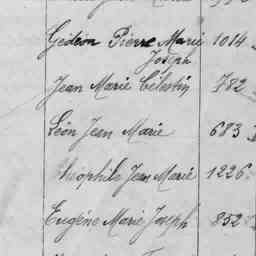 Gédéon Pierre Marie 1014
Joseph
Jean Marie Célestin 782
Léon Jean Marie 683
Théophile Jean Marie 1226
Eugène Marie Joseph 852